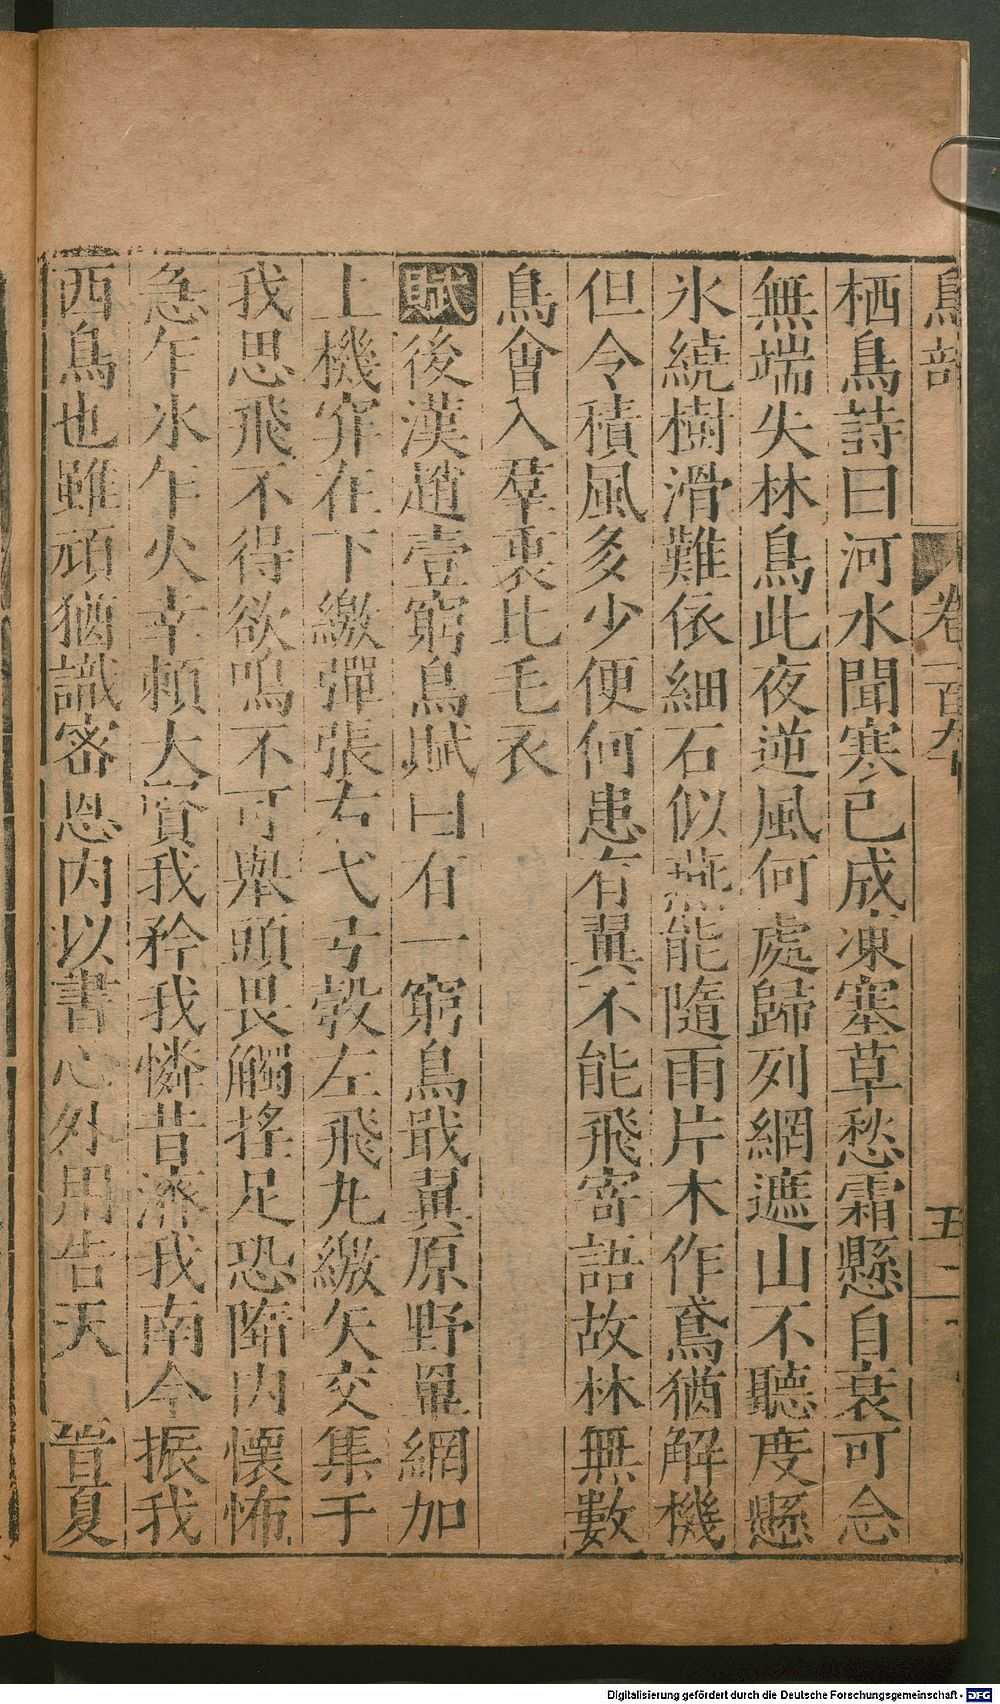 鳥部 卷一百九十 五二
栖烏詩曰河水聞寒已成凍塞草愁霜懸自衰可念
無端失林鳥此夜逆風何處歸列網遮山不聽度懸
氷繞樹滑難依細石似燕能隨雨片木作鳶猶解機
但令積風多少便何患有翼不能飛寄語故林無數
鳥會入羣裏比毛衣
賦後漢趙壹窮鳥賦曰有一窮鳥戢翼原野罼網加
上機穽在下繳彈張右弋弓彀左飛丸繳矢交集于
我思飛不得欲鳴不可舉頭畏觸搖足恐隕內懷怖
急乍氷乍火幸賴大賢我矜我憐昔濟我南今振我
西鳥也雖頑猶識密恩內以書心外用告天 晉夏
Digitalisierung gefördert durch die Deutsche Forschungsgemeinschaft - DFG